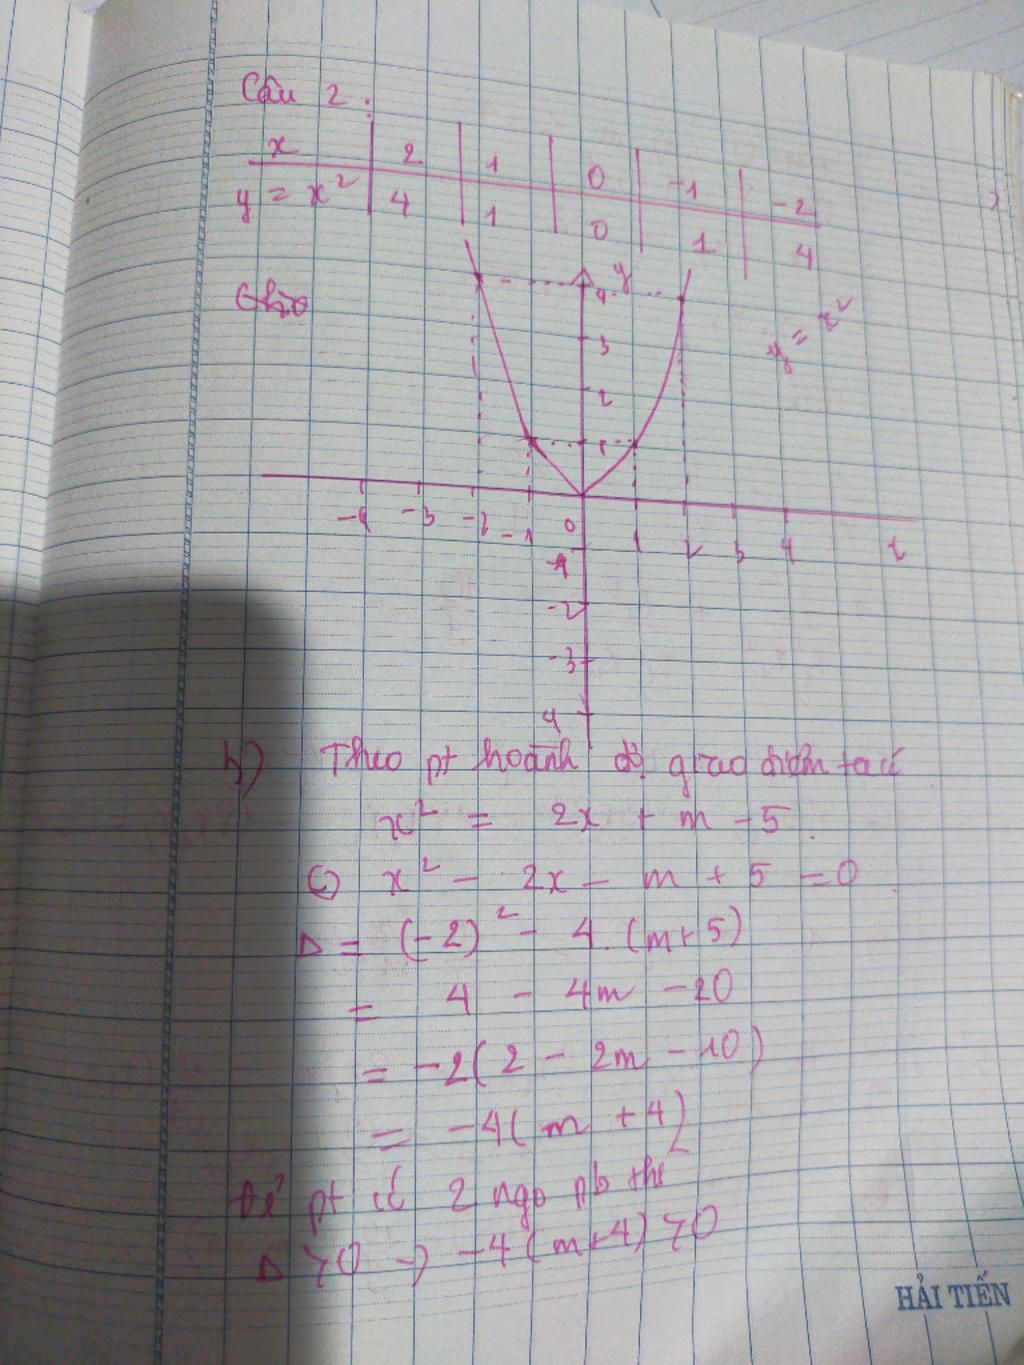 Câu 2.
x 2 1 0 -1 -2
y = x² 4 1 0 1 4
y
4
3
2
1
y = x²
-4 -3 -2 -1 0 1 2 3 4 x
-1
-2
-3
4
b) Theo pt hoành độ giao điểm ta có
x² = 2x + m - 5.
x² - 2x - m + 5 = 0
Δ = (-2)² - 4.(m+5)
= 4 - 4m - 20
= -2(2 - 2m - 10)
= -4(m + 4)
Để pt có 2 ngo pb thì
Δ > 0 → -4(m+4) > 0
HẢI TIẾN